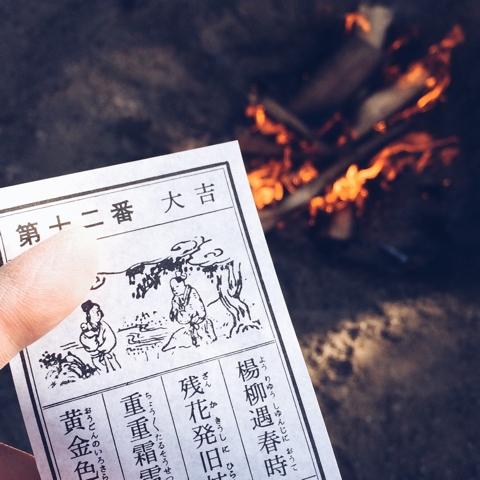 第十二番 大吉
よう りゆう しゆんじに おうて
楊柳遇春時
ざん か きうしに ひら
残花発旧
ちよう〱たるそうせつ
重重霜雪
おうごんのいろさら
黄金色